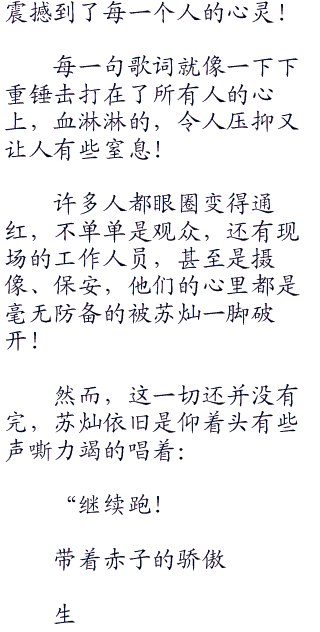 震撼到了每一个人的心灵！
每一句歌词就像一下下
重锤击打在了所有人的心
上，血淋淋的，令人压抑又
让人有些窒息！
许多人都眼圈变得通
红，不单单是观众，还有现
场的工作人员，甚至是摄
像、保安，他们的心里都是
毫无防备的被苏灿一脚破
开！
然而，这一切还并没有
完，苏灿依旧是仰着头有些
声嘶力竭的唱着：
“继续跑！
带着赤子的骄傲
生